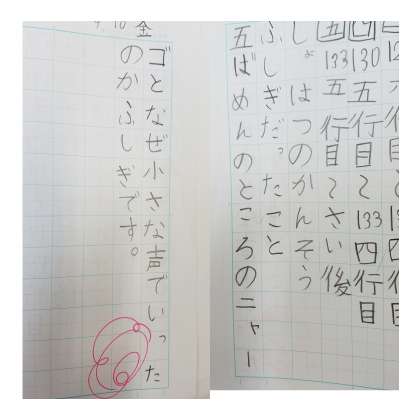 四 130 五行目〜133 四行目
五 133 五行目〜さい後
しょはつのかんそう
ふしぎだったこと
五ばめんのところのニャー
金
ゴとなぜ小さな声でいった
のかふしぎです。